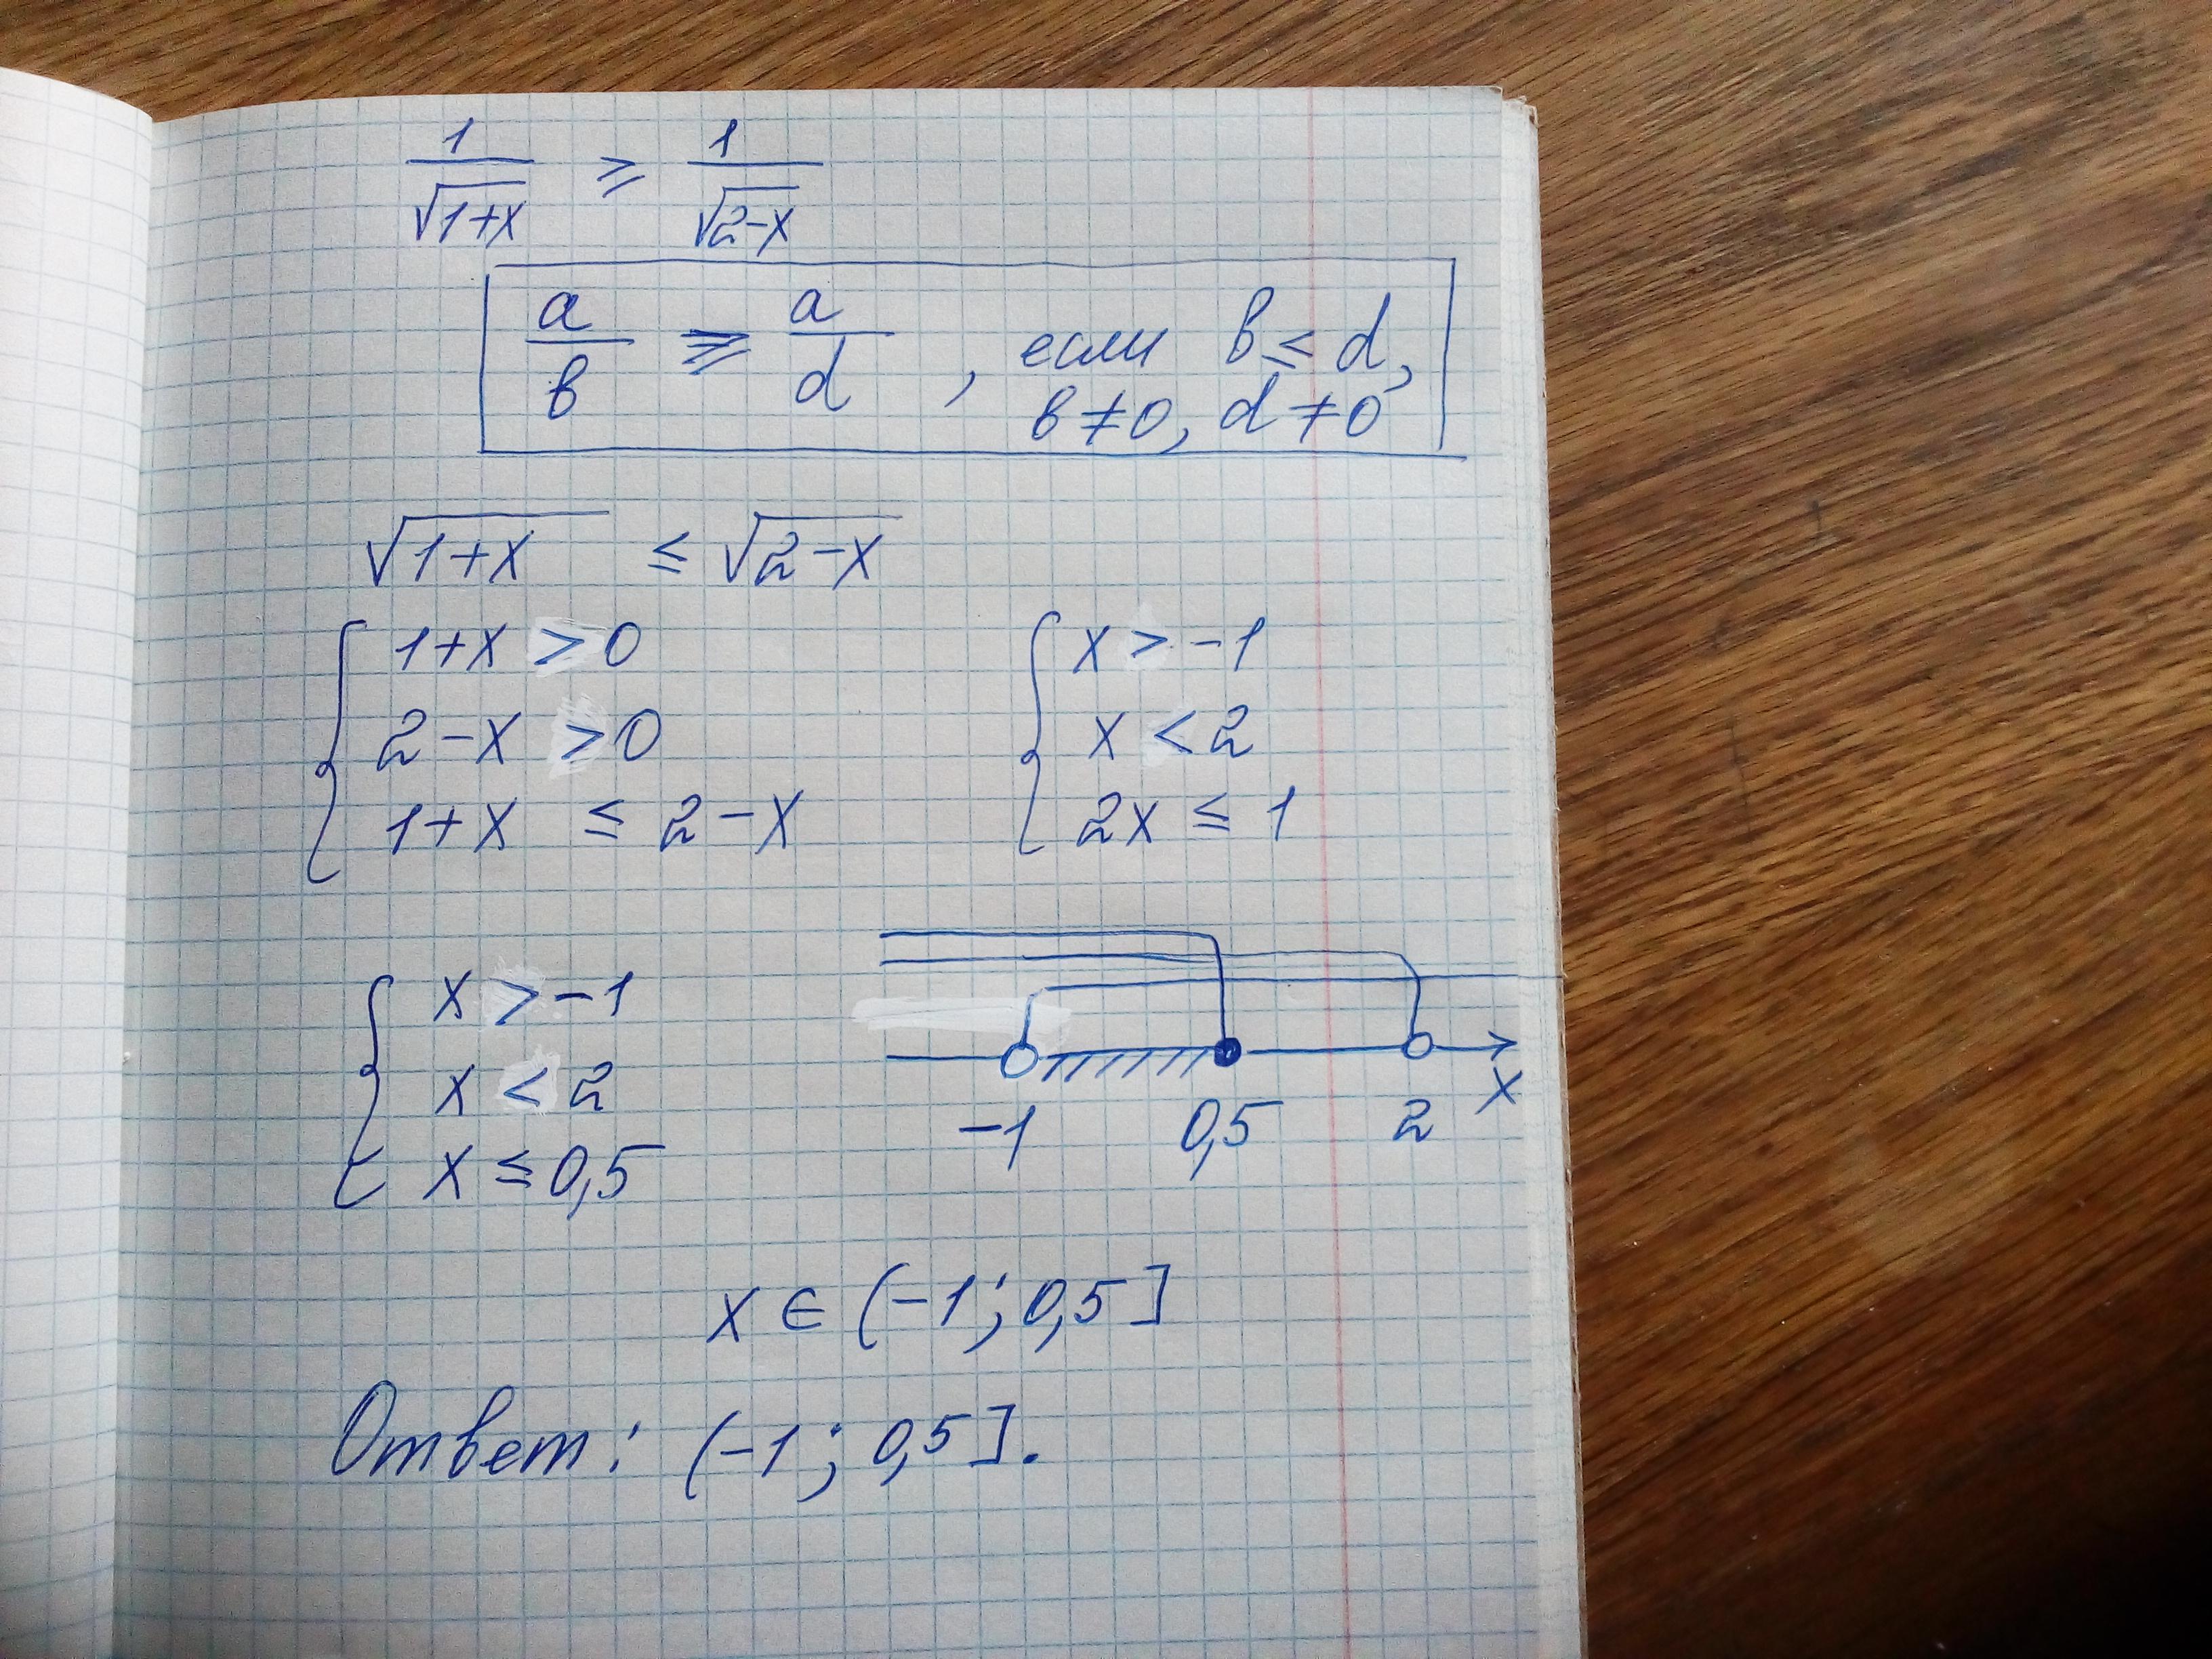 1/√(1+x) ≥ 1/√(2-x)
a/в ≥ a/d , если в ≤ d,
в ≠ 0, d ≠ 0
√(1+x) ≤ √(2-x)
1+x > 0
2-x > 0
1+x ≤ 2-x
x > -1
x < 2
2x ≤ 1
x > -1
x < 2
x ≤ 0,5
-1 0,5 2 x
x ∈ (-1; 0,5]
Ответ: (-1; 0,5].